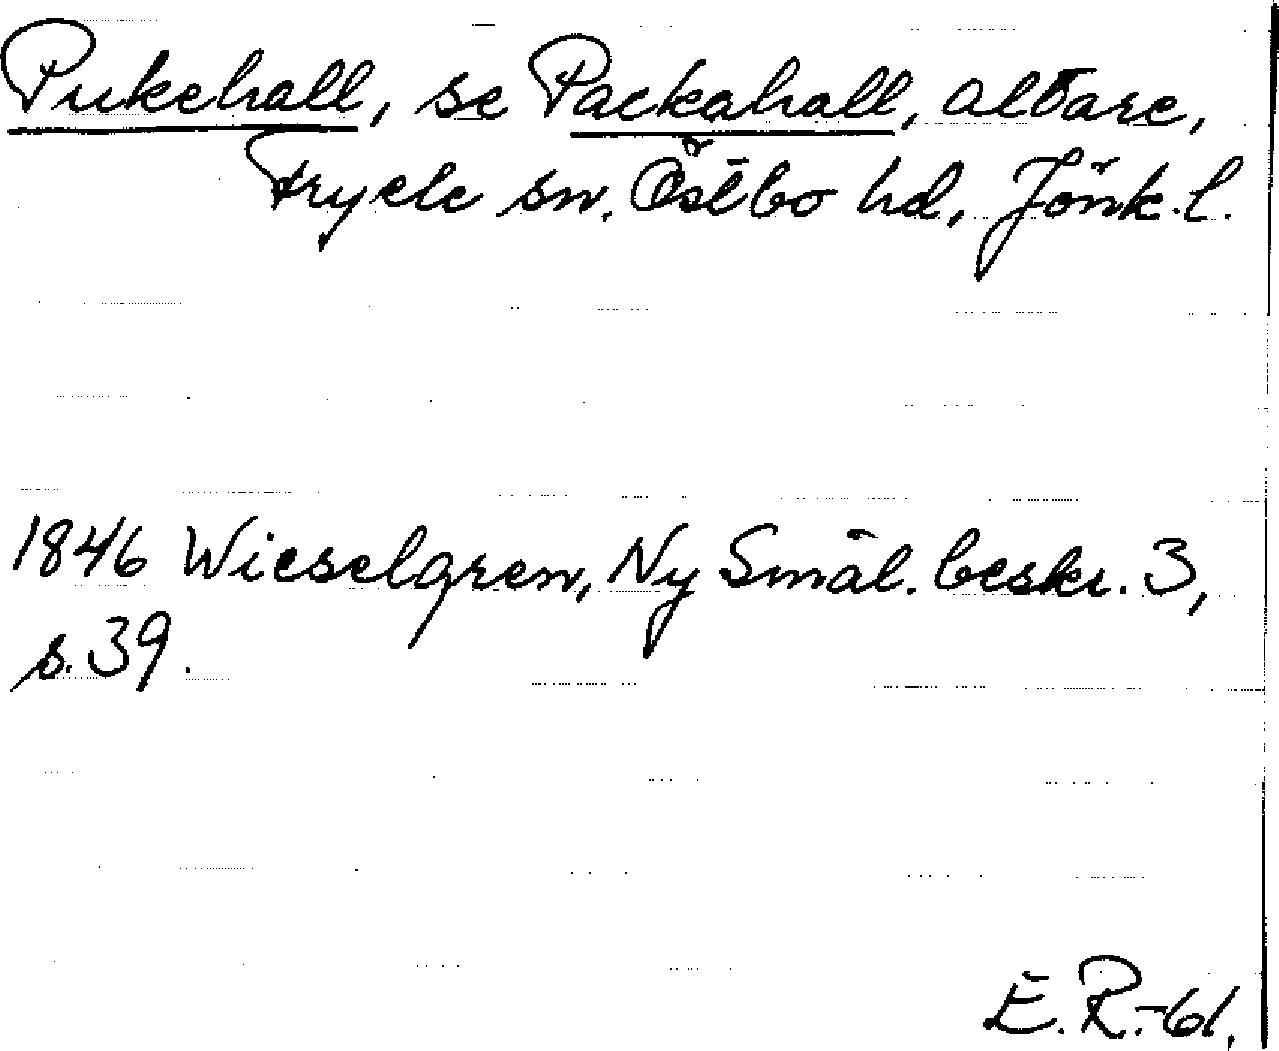 Pukehall, se Packahall, altare,
Fryele sn. Östbo hd, Jönk. l.
1846 Wieselgren, Ny Smål. beskr. 3,
s. 39.
E. R.-61.